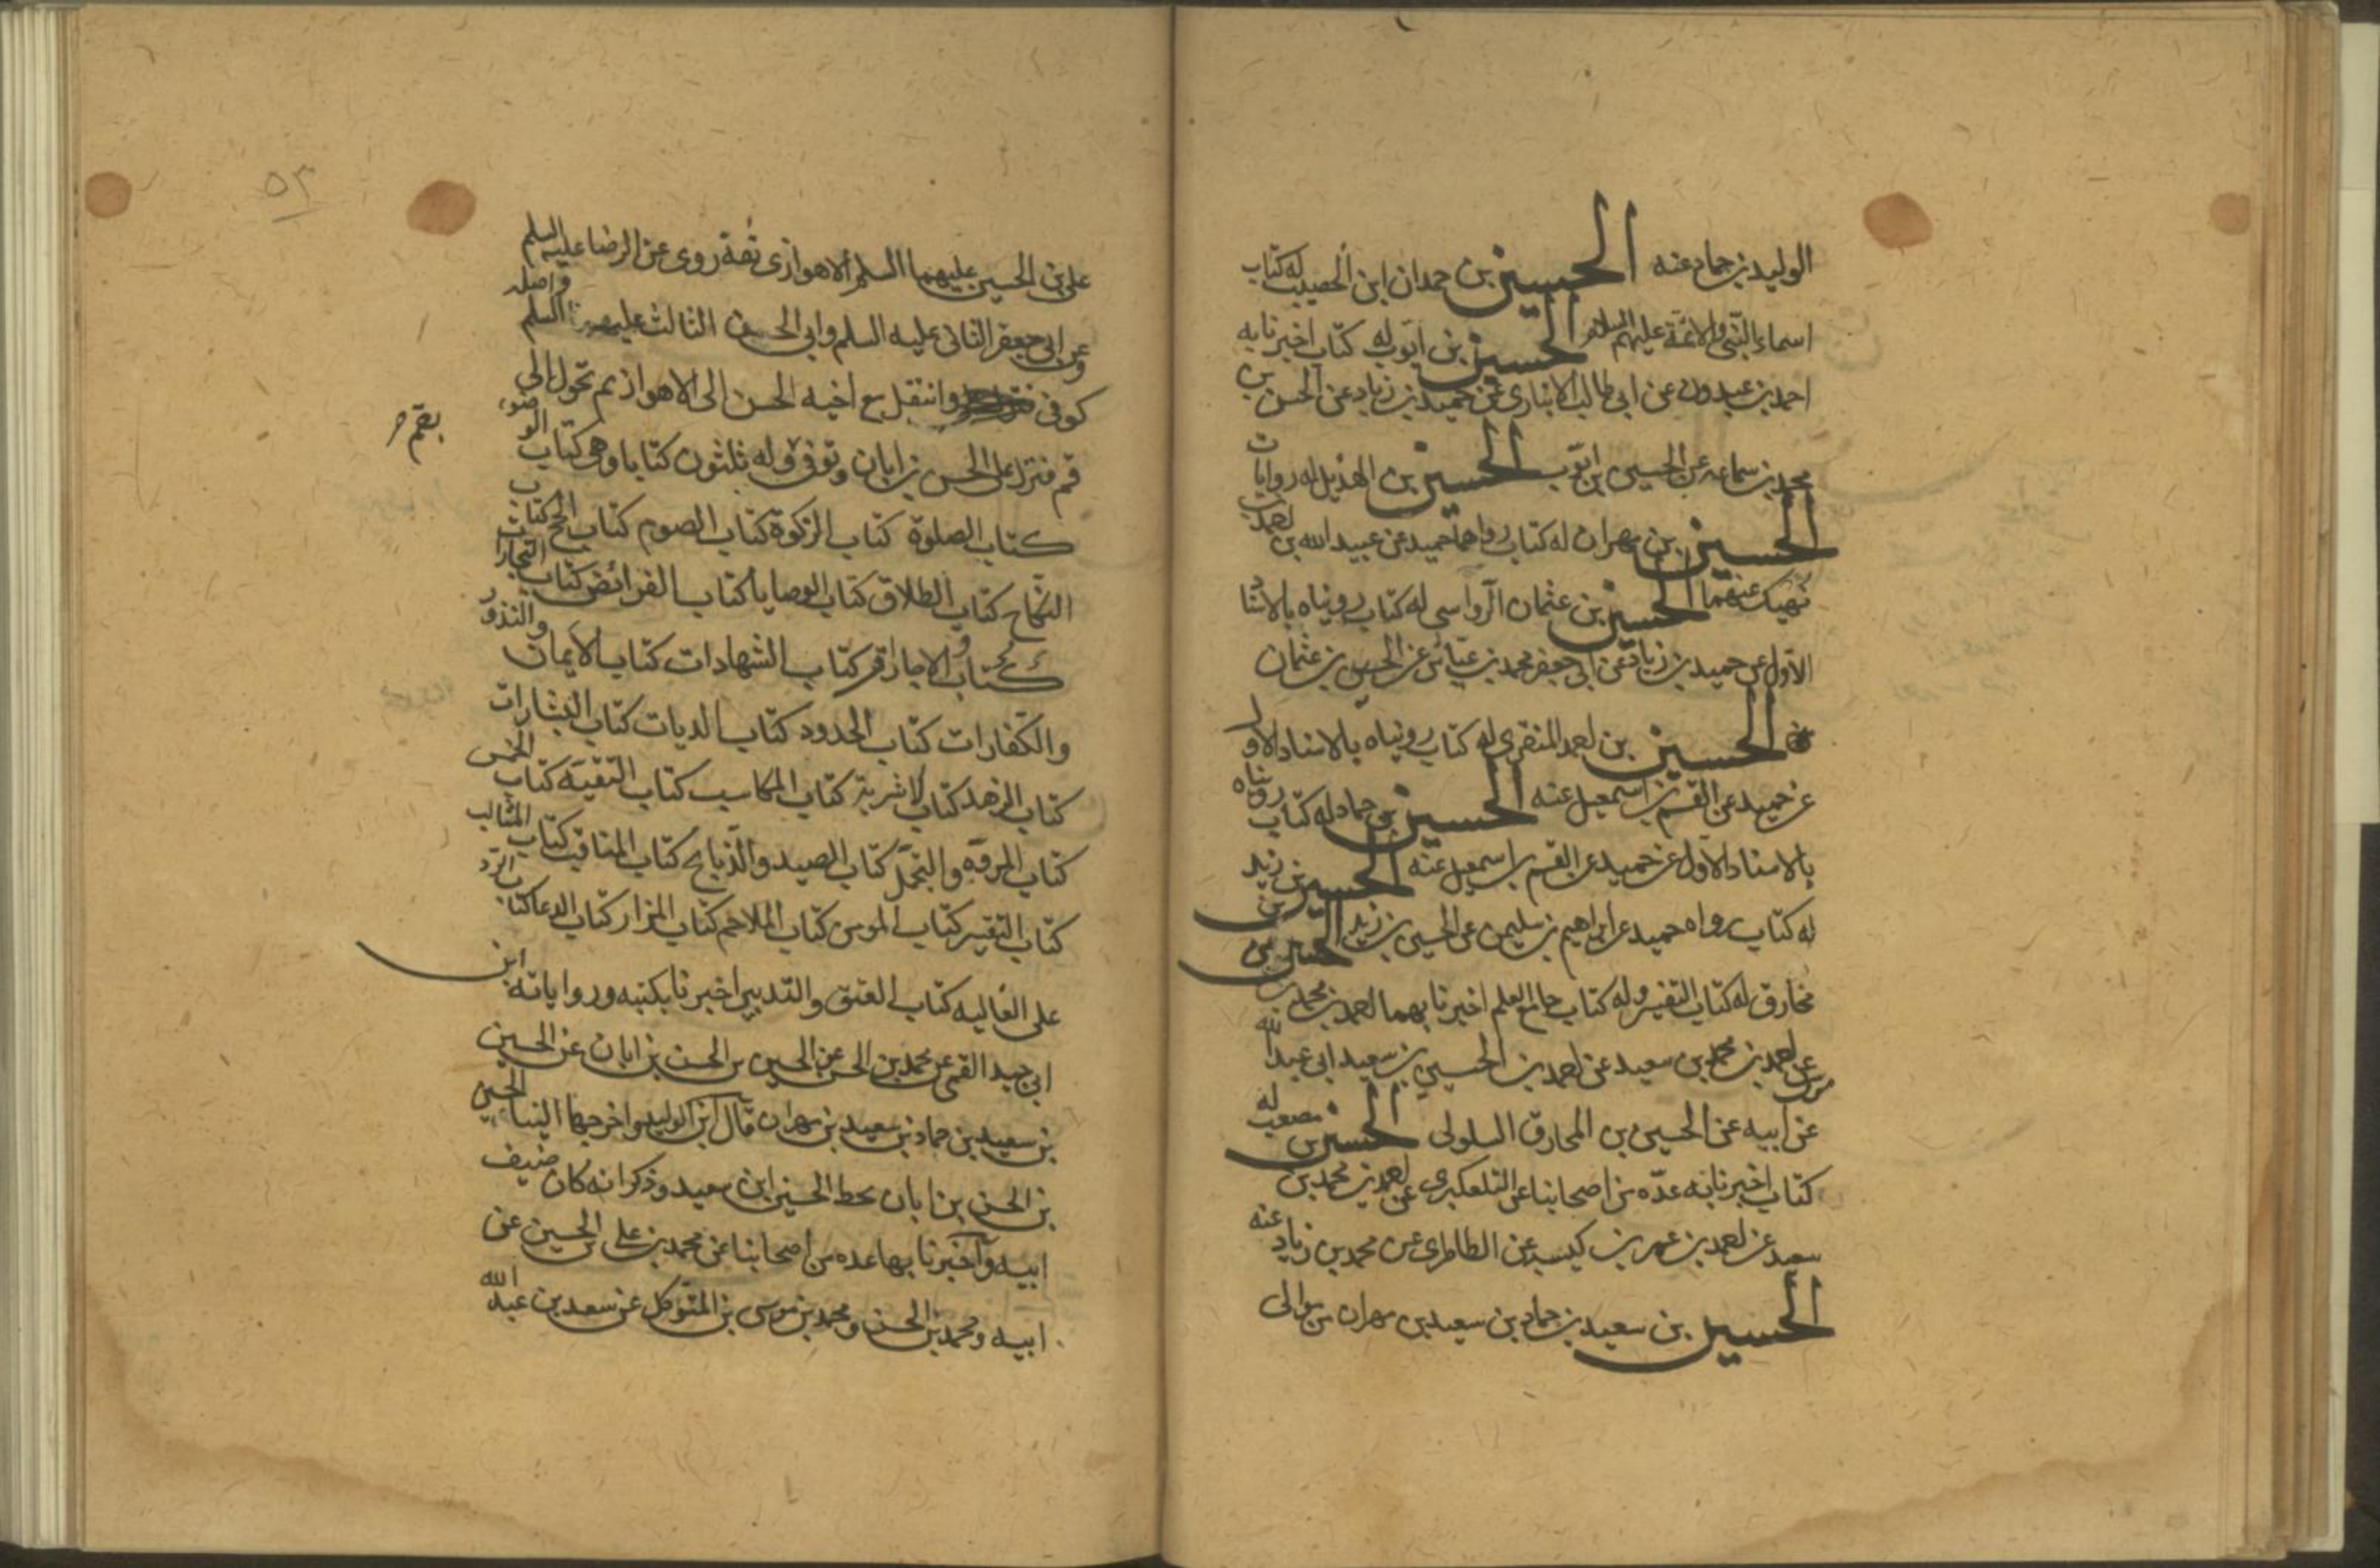 الوليد بن حماد عنه الحسين بن حمدان ابن الخصيب له كتاب
اسماء النبى والائمة عليهم السلم الحسين بن ايوب له كتاب اخبرنا به
احمد بن عبدون عن ابى طالب الانبارى عن حميد بن زياد عن الحسن بن
محمد بن سماعه عن الحسين ابن ايوب الحسين بن الهذيل له روايات
الحسين بن مهران له كتاب رواهما حميد عن عبيد الله بن احمد بن
نهيك عنهما الحسين بن عثمان الرواسى له كتاب رويناه بالاسناد
الاول عن حميد بن زياد عن ابى جعفر محمد بن عياش عن الحسين بن عثمان
الحسين بن احمد المنقرى له كتاب رويناه بالاسناد الاول
عن حميد عن القسم بن اسمعيل عنه الحسين بن حماد له كتاب رويناه
بالاسناد الاول عن حميد عن القسم بن اسمعيل عنه الحسين بن زيد
له كتاب رواه حميد عن ابراهيم بن سليمن عن الحسين بن زيد الحسين بن
مخارق له كتاب التفسير وله كتاب جامع العلم اخبرنا بهما احمد بن محمد بن
موسى عن احمد بن محمد بن سعيد عن احمد بن الحسين بن سعيد ابى عبد الله
عن ابيه عن الحسين بن المخارق السلولى الحسين بن مصعب له
كتاب اخبرنا به عدّه من اصحابنا عن التلعكبرى عن احمد بن محمد بن
سعيد عن احمد بن عمر بن كيسبه عن الطاطرى عن محمد بن زياد عنه
الحسين بن سعيد بن حماد بن سعيد بن مهران من موالى
٥٢
على بن الحسين عليهما السلم الاهوازى ثقة روى عن الرضا عليه السلم
وعن ابى جعفر الثانى عليه السلم وابى الحسن الثالث عليهم السلم واصله
كوفى وانتقل مع اخيه الحسن الى الاهواز ثم تحول الى
قم فنزل على الحسن بن ابان وتوفى وله ثلثون كتابا وهى كتاب الوضوء
بقم
كتاب الصلوة كتاب الزكوة كتاب الصوم كتاب الحج كتاب
النكاح كتاب الطلاق كتاب الوصايا كتاب الفرائض كتاب التجارات
كتاب الاجارات كتاب الشهادات كتاب الايمان والنذور
والكفارات كتاب الحدود كتاب الديات كتاب البشارات
كتاب الزهد كتاب الاشربة كتاب المكاسب كتاب التقية كتاب الخمس
كتاب المروة والتجمل كتاب الصيد والذبايح كتاب المناقب كتاب المثالب
كتاب التفسير كتاب المومن كتاب الملاحم كتاب المزار كتاب الدعا كتاب الرد
على الغاليه كتاب العتق والتدبير اخبرنا بكتبه ورواياته ابن
ابى جيد القمى عن محمد بن الحسن عن الحسين بن الحسن بن ابان عن الحسين
بن سعيد بن حماد بن سعيد بن مهران قال ابن الوليد واخرجها الينا الحسين
بن الحسن بن ابان بخط الحسين ابن سعيد وذكر انه كان ضيف
ابيه واخبرنا بها عده من اصحابنا عن محمد بن على بن الحسين عن
ابيه ومحمد بن الحسن ومحمد بن موسى بن المتوكل عن سعد بن عبد الله